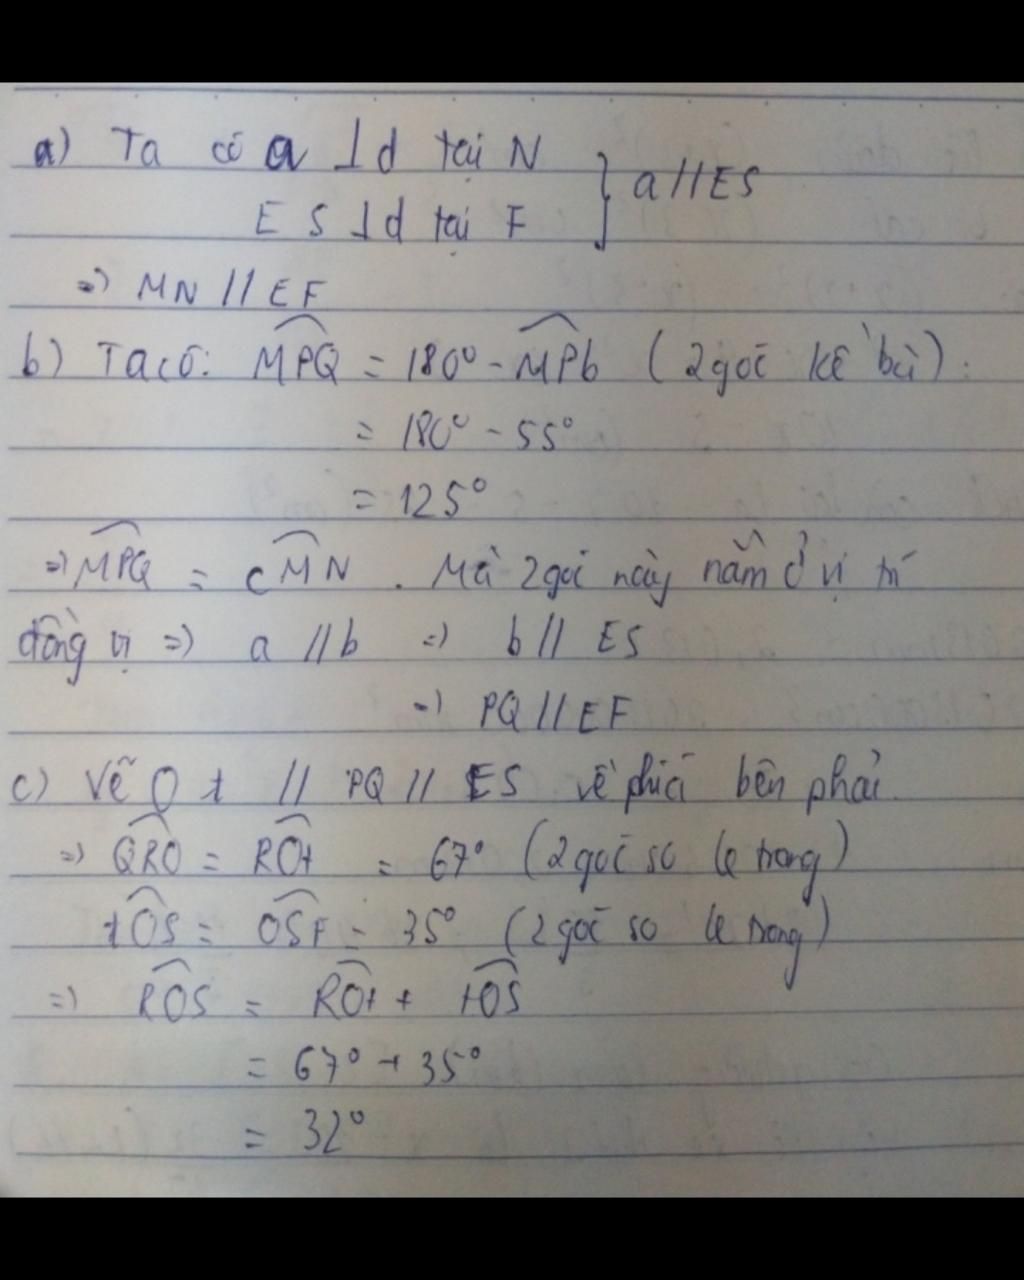 a) Ta có a ⊥ d tại N
ES ⊥ d tại F } a // ES
=> MN // EF
b) Ta có: MPQ = 180° - MPb (2 góc kề bù).
= 180° - 55°
= 125°
=> MPQ = cMN. Mà 2 góc này nằm ở vị trí
đồng vị => a // b => b // ES
=> PQ // EF
c) Vẽ Ot // PQ // ES về phía bên phải.
=> QRO = ROt = 67° (2 góc so le trong)
tOS = OSF = 35° (2 góc so le trong)
=> ROS = ROt + tOS
= 67° + 35°
= 32°